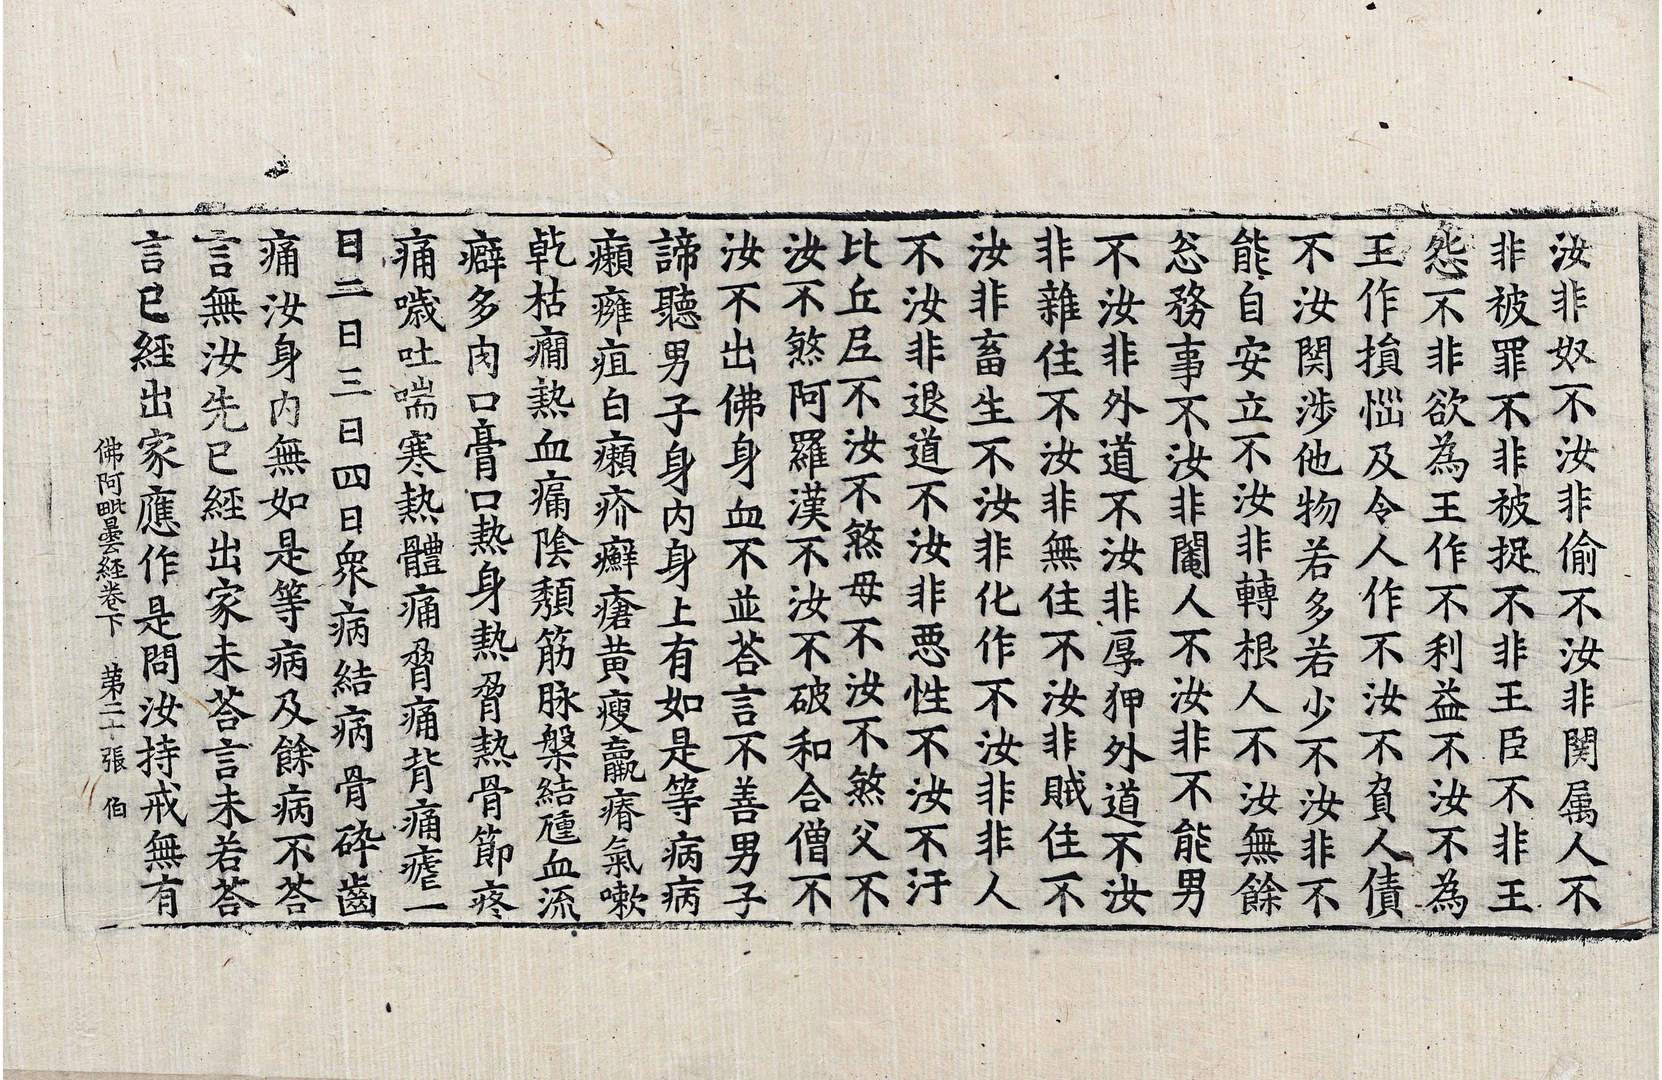 汝非奴不汝非偷不汝非関属人不
非被罪不非被捉不非王臣不非王
怨不非欲為王作不利益不汝不為
王作損惱及令人作不汝不負人債
不汝関涉他物若多若少不汝非不
能自安立不汝非轉根人不汝無餘
忩務事不汝非閹人不汝非不能男
不汝非外道不汝非厚狎外道不汝
非雜住不汝非無住不汝非賊住不
汝非畜生不汝非化作不汝非非人
不汝非退道不汝非惡性不汝不汙
比丘尼不汝不煞母不汝不煞父不
汝不煞阿羅漢不汝不破和合僧不
汝不出佛身血不並荅言不善男子
諦聽男子身內身上有如是等病病
癩癰疽白癩疥癬瘡黃瘦羸瘠氣嗽
乹枯癇熱血痛陰頹筋脉槃結瘇血流
癖多肉口膏口熱身熱脅熱骨節疼
痛噦吐喘寒熱體痛脅痛背痛瘧一
日二日三日四日衆病結病骨碎齒
痛汝身內無如是等病及餘病不荅
言無汝先已經出家未荅言未若荅
言已經出家應作是問汝持戒無有
佛阿毗曇経卷下 第二十張 伯